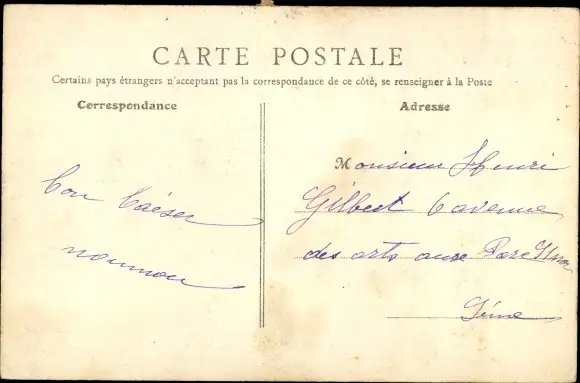 CARTE POSTALE
Certains pays étrangers n'acceptant pas la correspondance de ce côté, se renseigner à la Poste
Correspondance
Adresse
Monsieur Henri
Gilbert 6 avenue
des arts aux Parc
Seine
nounou